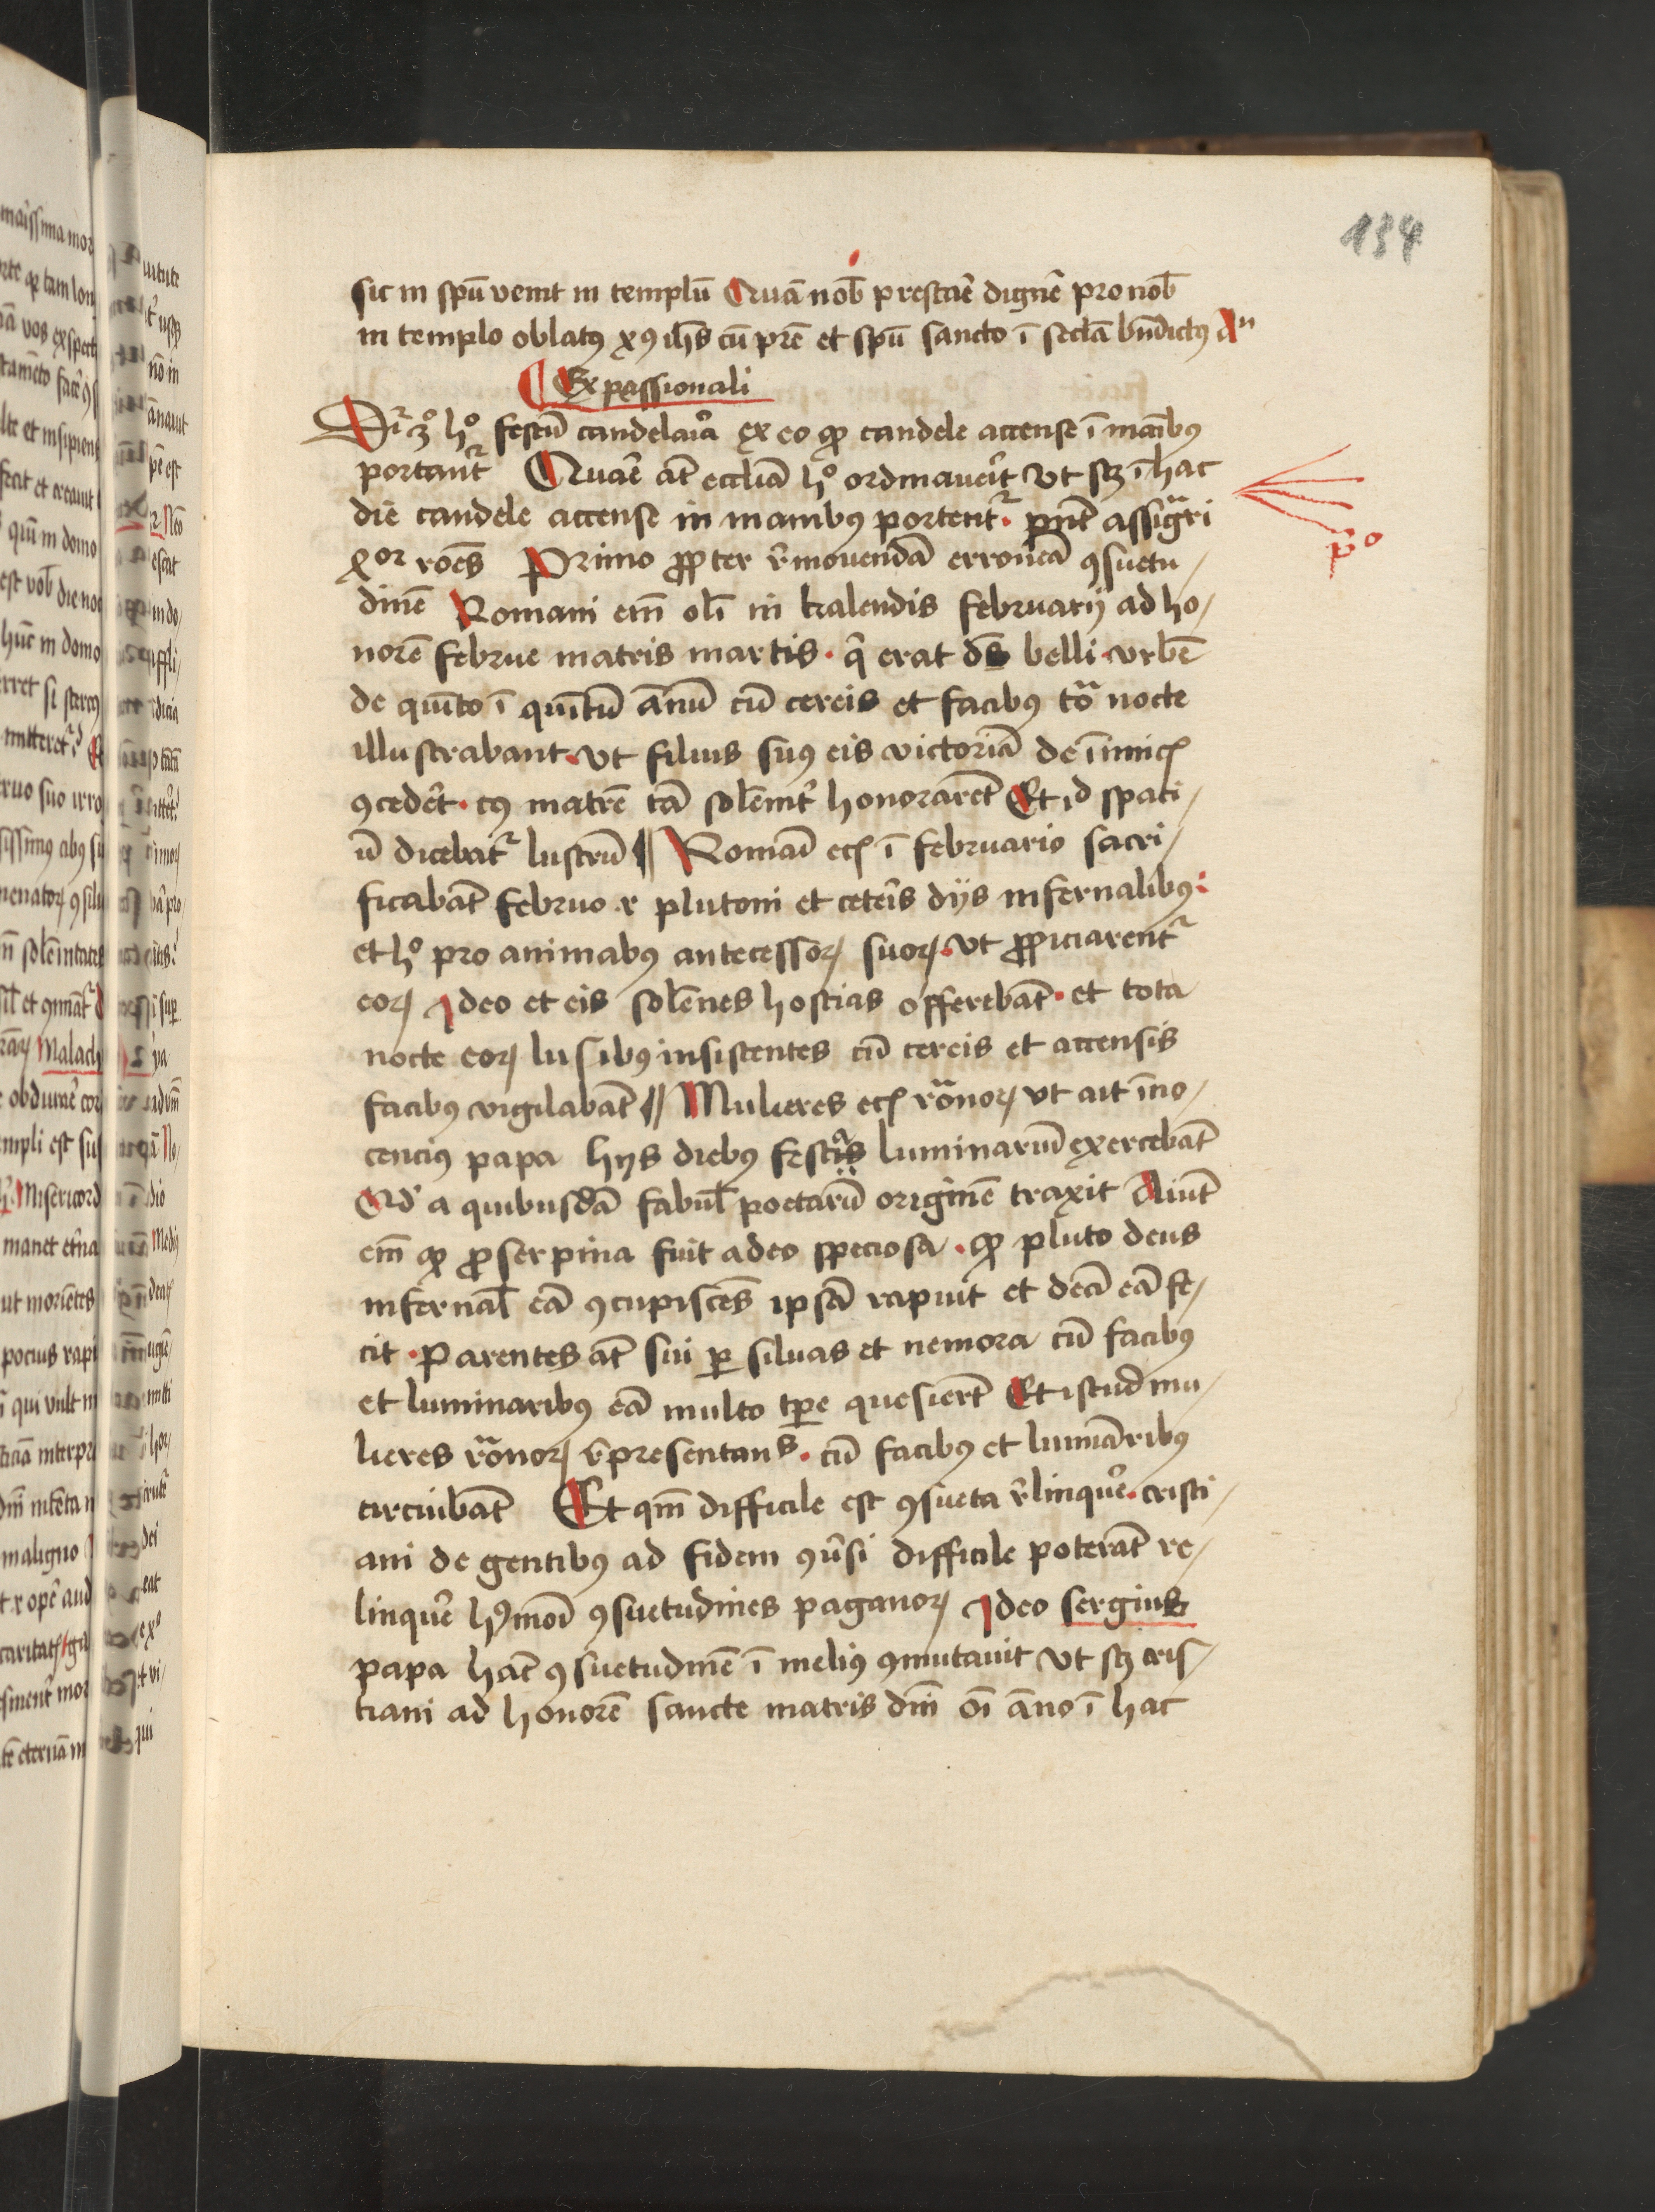 134
sic in spũ venit in templũ Quã nob̃ prestar̃e dignet̃ pro nob̃
in templo oblatꝰ xꝰ ihs̃ cũ pr̃e et spũ sancto ĩ secl̃a bñdictꝰ An
Ex passionali
Dr̃ ꝫo hº festũ candelar̃ia ex eo ꝙ candele accense ĩ manĩbꝰ
portant᷑ Quar̃e at̃ eccl̃iã hº ordinauer̃it vt scꝫ ĩ hac
die candele accense in manibꝰ portent᷑. pñt assig̃ri
xor ro͠es Primo ꝓpter r̃mouendã erroneã ꝯsuetu/
dinẽ Romani em̃ oli͂ in kalendis februarij ad ho/
norẽ februe matris martis. q̃ erat ds̃ belli. vrbẽ
de quĩto ĩ quĩtũ ãnũ cũ cereis et facibꝰ tõ nocte
illustrabant. vt filius suꝰ eis victoriã de ĩimicꝭ
ꝯceder̃t. cꝰ matrẽ tã solẽnit̃ honorarẽt Et id spaci/
ũ dicebat᷑ lustrũ ¶ Romaĩ ecꝭ ĩ februario sacri/
ficabãt februo .r plutoni et ceter̃is dijs infernalibꝰ:
et hº pro animabꝰ antecessoꝝ suoꝝ. vt ꝓpiciarent᷑
eoꝝ Ideo et eis solẽnes hostias offerebãt. et tota
nocte eoꝝ lusibꝰ insistentes cũ cereis et accensis
facibꝰ vigilabãt ¶ Mulieres ecꝭ rõnoꝝ vt ait ĩno/
cencius papa hijs diebꝰ festa luminariũ exercebãt
Qd̃ a quibusdã fabul̃ poetarũ originẽ traxit Aiũt
em̃ ꝙ ꝓserpina fuit adeo speciosa. ꝙ pluto deus
infernal̃ eã ꝯcupiscẽs ipsã rapuit et deã eã fe/
cit. Parentes at̃ sui ꝑ siluas et nemora cũ facibꝰ
et luminaribꝰ eã multo tꝑe quesierũt Et istud mu/
lieres rõnoꝝ r̃presentans. cũ facibꝰ et lumiãribꝰ
circuibãt Et qm̃ difficile est ꝯsueta r̃linquer̃e. cristi/
ani de gentibꝰ ad fidem ꝯũsi difficile poterãt re/
linquer̃e hꝰmoĩ ꝯsuetudines paganoꝝ Ideo sergius
papa hãc ꝯsuetudinẽ ĩ meliꝰ ꝯmutauit vt scꝫ cris/
tiani ad honorẽ sancte matris dm̃ oĩ ãno ĩ hac
pº